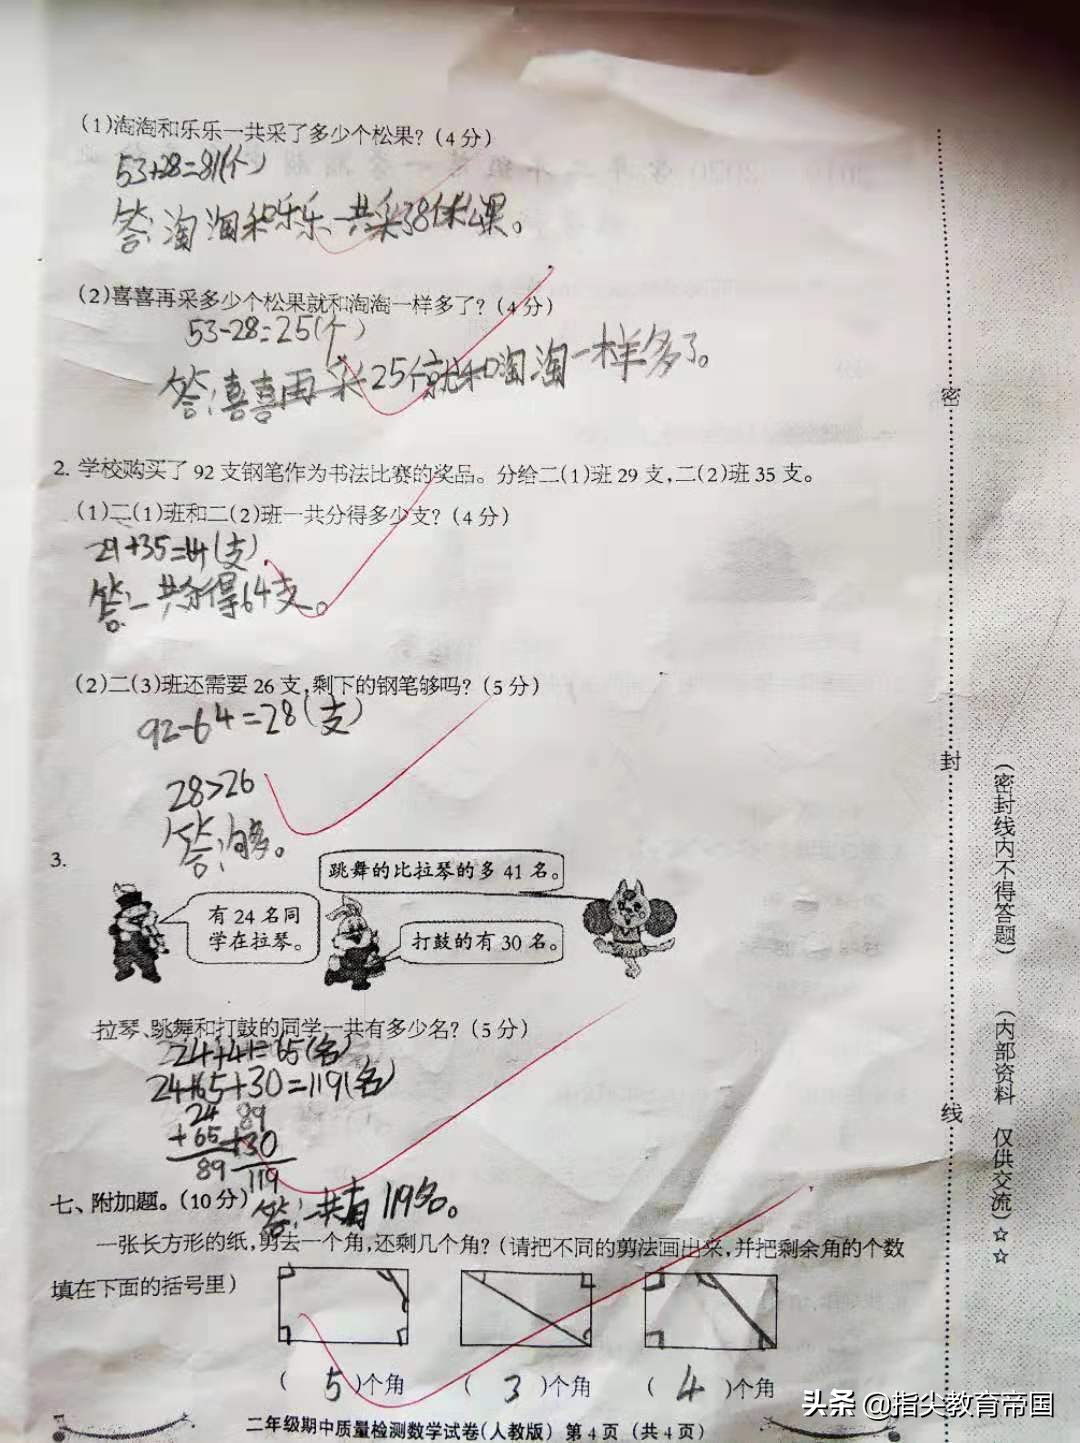 (1)淘淘和乐乐一共采了多少个松果?(4分)
53+28=81(个)
答:淘淘和乐乐一共采了81个松果。
(2)喜喜再采多少个松果就和淘淘一样多了?(4分)
53-28=25(个)
答:喜喜再采25个就和淘淘一样多了。
2. 学校购买了92支钢笔作为书法比赛的奖品。分给二(1)班29支,二(2)班35支。
(1)二(1)班和二(2)班一共分得多少支?(4分)
29+35=64(支)
答:一共分得64支。
(2)二(3)班还需要26支,剩下的钢笔够吗?(5分)
92-64=28(支)
28>26
答:够。
3.
跳舞的比拉琴的多41名。
有24名同
学在拉琴。
打鼓的有30名。
拉琴、跳舞和打鼓的同学一共有多少名?(5分)
24+41=65(名)
24+65+30=119(名)
24 89
+65 +30
89 119
七、附加题。(10分)
答:一共有119名。
一张长方形的纸,剪去一个角,还剩几个角?(请把不同的剪法画出来,并把剩余角的个数
填在下面的括号里)
( 5 )个角 ( 3 )个角 ( 4 )个角
二年级期中质量检测数学试卷(人教版) 第4页 (共4页)
密
封
线
(密封线内不得答题) (内部资料 仅供交流)☆☆
头条@指尖教育帝国